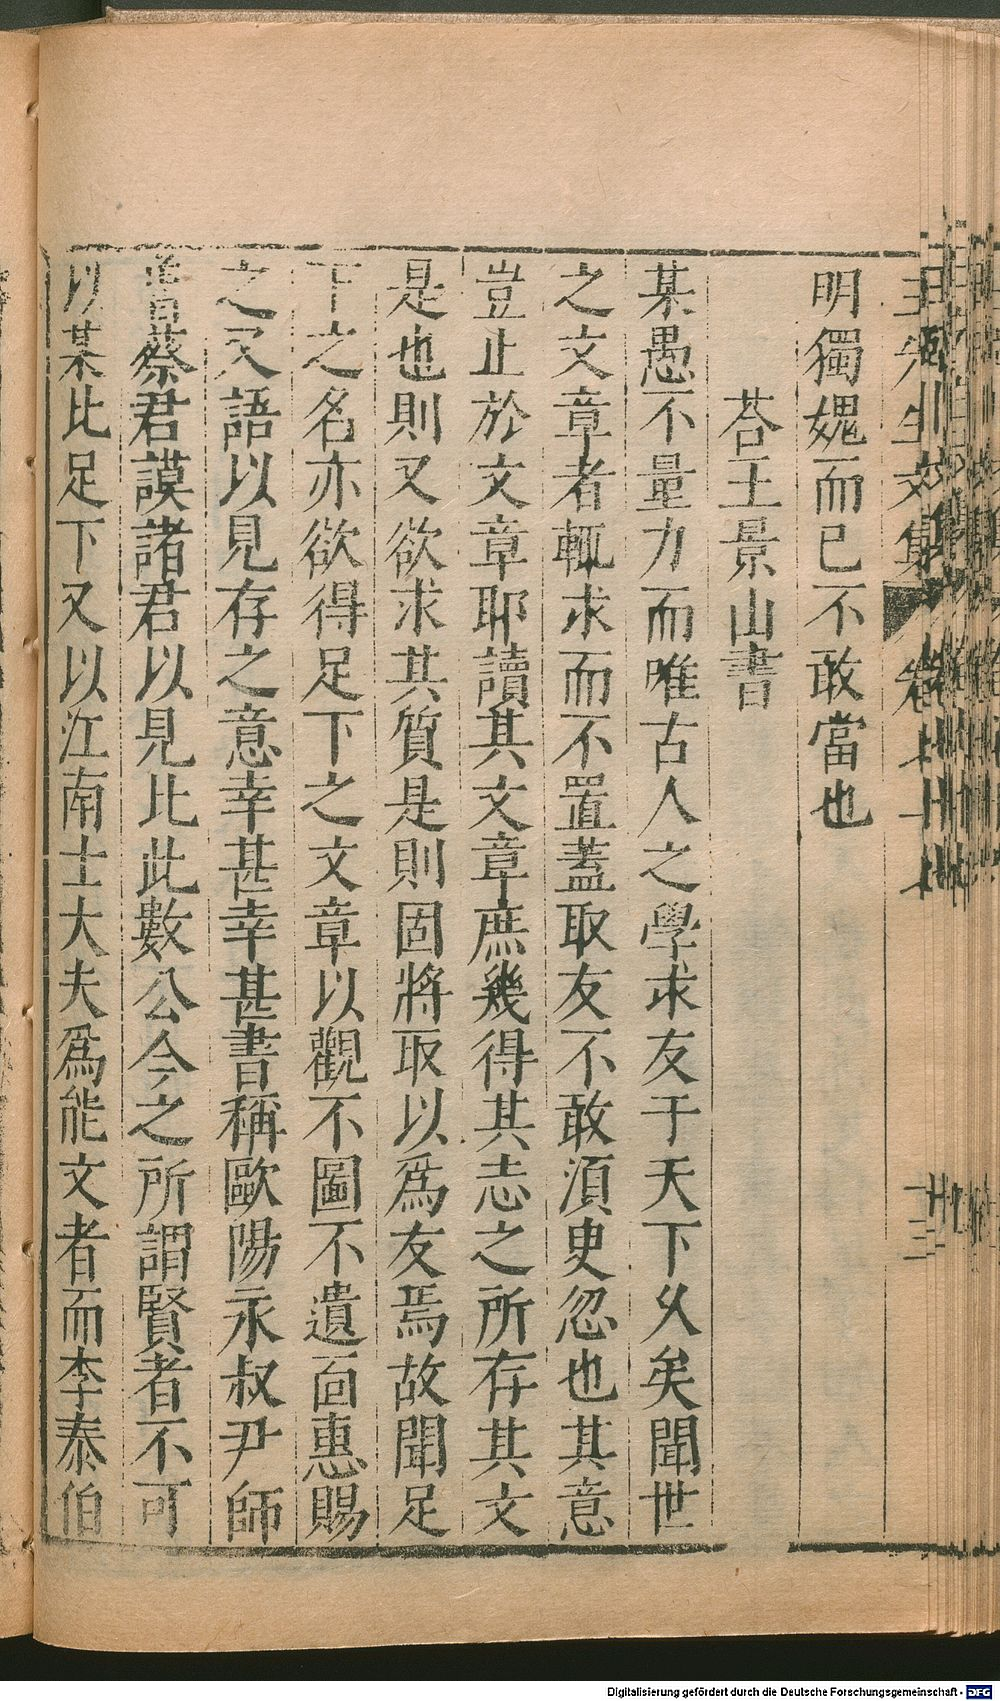 明獨媿而已不敢當也
荅王景山書
某愚不量力而唯古人之學求友于天下乆矣聞世
之文章者輒求而不置蓋取友不敢須臾忽也其意
豈止於文章耶讀其文章庶幾得其志之所存其文
是也則又欲求其質是則固將取以爲友焉故聞足
下之名亦欲得足下之文章以觀不圖不遺而惠賜
之又語以見存之意幸甚幸甚書稱歐陽永叔尹師
魯蔡君謨諸君以見比此數公今之所謂賢者不可
以某比足下又以江南士大夫爲能文者而李泰伯
Digitalisierung gefördert durch die Deutsche Forschungsgemeinschaft - DFG